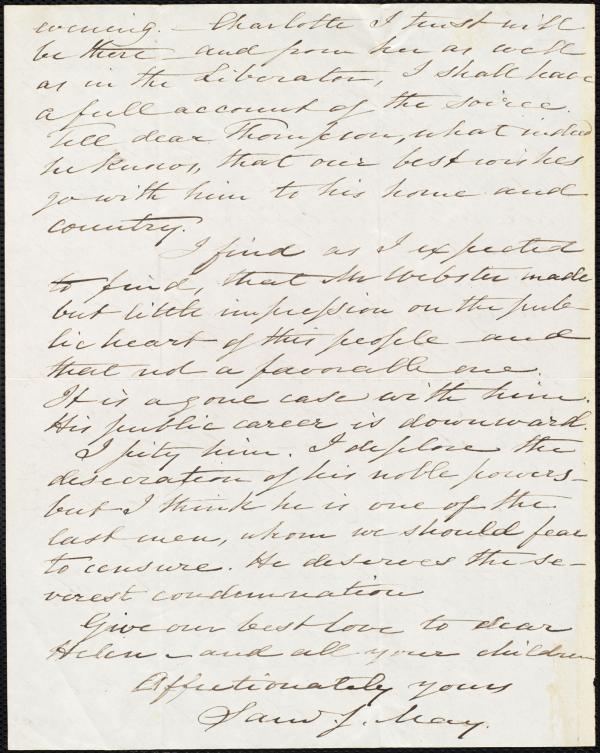 evening. – Charlotte I trust will
be there – and from her as well
as in the Liberator, I shall have
a full account of the soiree.
Tell dear Thompson, what indeed
he knows, that our best wishes
go with him to his home and
country.
I find as I expected
to find, that Mr Webster made
but little impression on the pub-
lic heart of this people – and
that not a favorable one.
It is a gone case with him.
His public career is downward.
I pity him. I deplore the
desecration of his noble powers –
but I think he is one of the
last men, whom we should fear
to censure. He deserves the se-
verest condemnation
Give our best love to dear
Helen – and all your children
Affectionately yours
Saml. J. May.